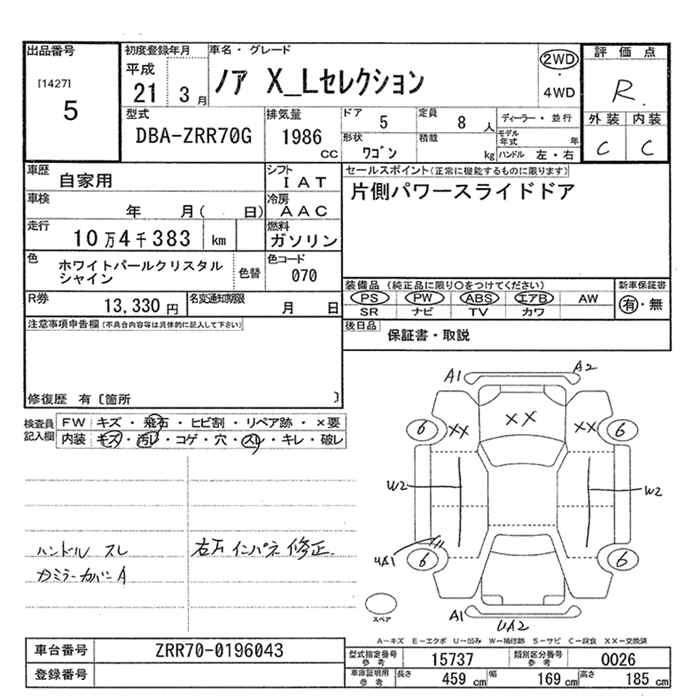 出品番号 初度登録年月 車名・グレード 評価点
[1427] 平成 2WD
5 21 3月 ノア X_Lセレクション ・ R.
4WD
型式 排気量 ドア 5 定員 8人 ディーラー・並行 外装 内装
DBA-ZRR70G 1986 cc 形状 ワゴン 積載 kg モデル年式 年 C C
ハンドル 左・右
車歴 自家用 シフト IAT セールスポイント(正常に機能するものに限ります)
車検 年 月( 日) 冷房 AAC 片側パワースライドドア
走行 10万4千383 km 燃料 ガソリン
色 ホワイトパールクリスタル 色替 色コード 070
シャイン
装備品(純正品に限り○をつけてください) 新車保証書
PS PW ABS エアB AW 有・無
SR ナビ TV カワ
R券 13,330円 名変通知期限 月 日
後日品 保証書・取説
注意事項申告欄(不具合内容等は具体的に記入して下さい)
修復歴 有〔箇所 〕
検査員記入欄 FW キズ・飛石・ヒビ割・リペア跡・×要
内装 キズ・汚レ・コゲ・穴・スレ・キレ・破レ
A1 A2
XX
6 XX XX 6
W2 W2
UA1
6 6
ハンドル スレ 右下インパネ修正
カミラーカバーA
スペア A1 UA2
A-キズ E-エクボ U-凹み W-補修跡 S-サビ C-腐食 XX-交換済
車台番号 ZRR70-0196043
登録番号
型式指定番号 参考 15737 類別区分番号 参考 0026
車庫証明用 参考 長さ 459 cm 幅 169 cm 高さ 185 cm